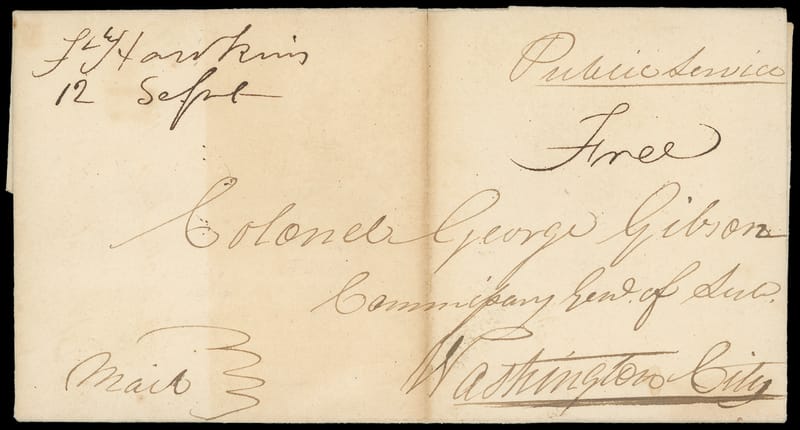 Ft Hawkins
12 Sept
Public Service
Free
Colonel George Gibson
Commissary Genl. of Sub.
Washington City
Mail